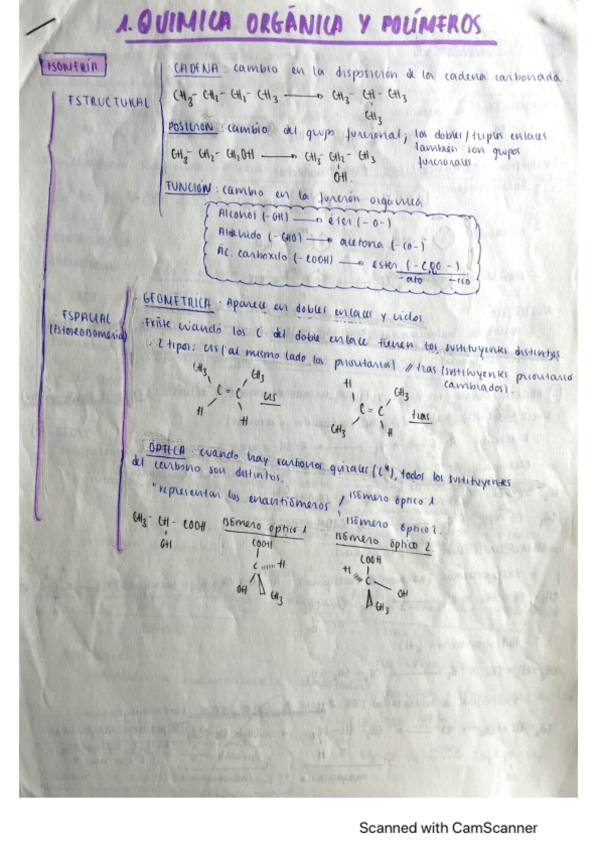 1. QUIMICA ORGÁNICA Y POLÍMEROS
ISOMERÍA
ESTRUCTURAL
CADENA: cambio en la disposición de los cadena carbonada.
CH3- CH2- CH2- CH3 → CH3- CH- CH3
CH3
POSICION: cambio del grupo funcional, los dobles/triples enlaces
tambien son grupos
funcionales.
CH3- CH2- CH2OH → CH3- CH2- CH3
OH.
FUNCIÓN: cambio en la función orgánica
Alcohol (-OH) → eter (-O-)
Aldehido (-CHO) → acetona (-CO-)
Ac. carboxilo (-COOH) → ester (-COO-)
-ato -ico
ESPACIAL
(Estereoisomería)
GEOMÉTRICA: Aparece en dobles enlaces y ciclos.
Existe cuando los C del doble enlace tienen los sustituyentes distintos.
· 2 tipos: cis (al mismo lado los prioritarios) // tras (sustituyentes prioritario
cambiados).
CH3 CH3
C = C cis
H H
H CH3
C = C tras
CH3 H
ÓPTICA: cuando hay carbonos quirales (C*), todos los sustituyentes
del carbono son distintos.
· "representan los enantiómeros / isómero óptico 1
isómero óptico 2.
CH3- CH- COOH
OH
ISÓmero óptico 1
COOH
C H
OH CH3
ISÓmero óptico 2
COOH
H C OH
CH3
Scanned with CamScanner